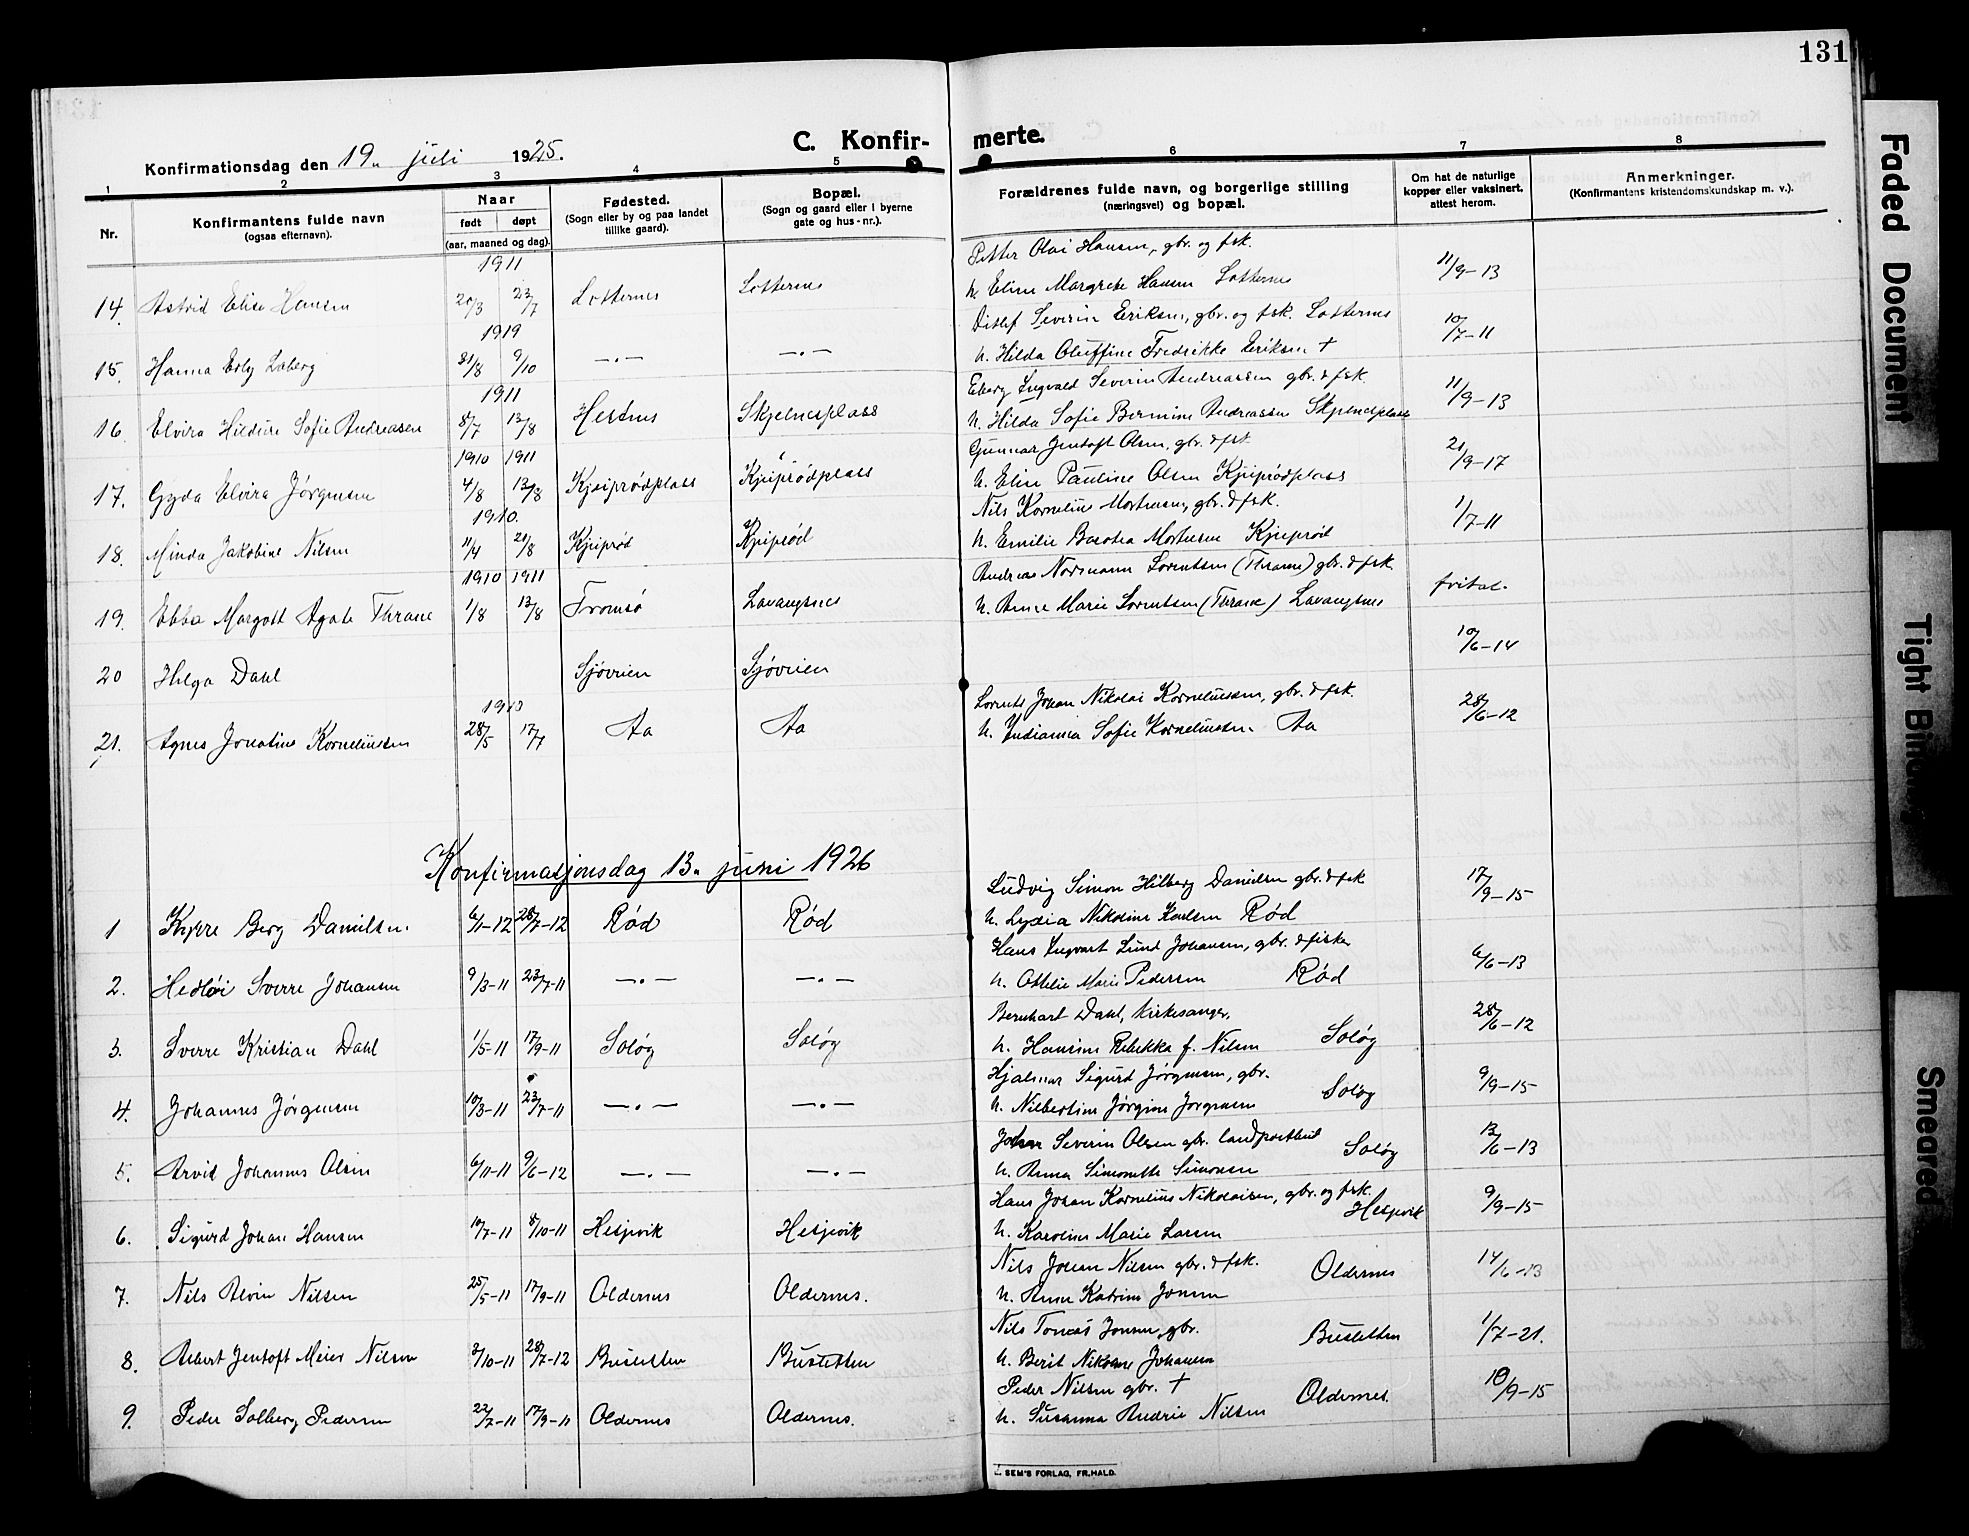 131
Konfirmationsdag den 19. juli 1925.
C. Konfir-
merte.
1 2 3 4 5 6 7 8
Nr.
Konfirmantens fulde navn
(ogsaa efternavn).
Naar
født døpt
(aar, maaned og dag).
Fødested.
(Sogn eller by og paa landet
tillike gaard).
Bopæl.
(Sogn og gaard eller i byerne
gate og hus-nr.).
Forældrenes fulde navn, og borgerlige stilling
(næringsvei) og bopæl.
Om hat de naturlige
kopper eller vaksinert,
attest herom.
Anmerkninger.
(Konfirmantens kristendomskundskap m. v.).
1911
Petter Olai Hansen, gbr. og fsk.
14. Astrid Elise Hansen 20/3 23/7 Lotternes Lotternes u. Eline Margrete Hansen Lotternes 11/9-13
1919
Ditlef Severin Eriksen, gbr. og fsk. Lotternes
15. Hanna Loberg 31/8 9/10 —„— —„— u. Hilda Oluffine Fredrikke Eriksen + 10/7-11
1911
Ingvald Severin Andreassen gbr. & fsk.
16. Elvira Hildure Sofie Andreasen 8/7 13/8 Hestnes Skjelnesplass u. Hilda Sofie Bermine Andreassen Skjelnesplass 11/9-13
1910 1911
Gunnar Jentoft Olsen, gbr. & fsk.
17. Gyda Elvira Jørgensen 4/8 13/8 Kjeiprødplass Kjeiprødplass u. Elise Pauline Olsen Kjeiprødplass 21/9-17
1910.
Nils Kornelius Mortensen, gbr. & fsk.
18. Minda Jakobine Nilsen 11/4 21/8 Kjeiprød Kjeiprød u. Emilie Mortensen Kjeiprød 1/7-11
1910 1911
Andreas Normann Lorentsen (Thrane) gbr. & fsk.
19. Ebba Margott Agate Thrane 1/8 13/8 Tromsø Lavangsnes u. Anne Marie Lorentsen (Thrane) Lavangsnes fritat.
20 Helga Dahl Sjøveien Sjøveien 10/6-14
1910
Lorents Johan Nikolai Korneliussen, gbr. & fsk.
21. Agnes Jonatine Korneliussen 28/5 17/7 Aa Aa u. Indianna Sofie Korneliussen. Aa 28/6-12
Konfirmasjonsdag 13. juni 1926
Ludvig Simon Hilberg Danielsen gbr. & fsk
1 Kyrre Berg Danielsen. 6/11-12 28/7-12 Rød Rød u. Lydia Nikoline Karlsen Rød 17/9-15
Hans Ingvart Lund Johansen, gbr. & fisker
2. Hedløi Sverre Johansen 9/3-11 23/7-11 —„— —„— u. Ottilie Marie Pedersen Rød 6/6-13
Bernhart Dahl, kirkesanger,
3. Sverre Kristian Dahl 1/5-11 17/9-11 Soløy Soløy u. Hansine Rebekka f. Nilsen Soløy 28/6-12
Hjalmar Sigurd Jørgensen, gbr.
4. Johannes Jørgensen 10/3-11 23/7-11 —„— —„— u. Nilbertine Jørgine Jørgensen Soløy 9/9-15
Johan Severin Olsen gbr. landpostbud
5. Arvid Johannes Olsen 6/11-11 9/6-12 —„— —„— u. Anna Simonette Simonsen Soløy 13/6-13
Hans Johan Kornelius Nikolaisen, gbr. og fsk.
6. Sigurd Johan Hansen 10/7-11 8/10-11 Hesjevik Hesjevik u. Karoline Marie Larsen Hesjevik 9/9-15
Nils Johan Nilsen gbr. & fsk.
7. Nils Alvin Nilsen 25/5-11 17/9-11 Oldernes Oldernes. u. Anne Katrine Jonsen Oldernes 14/6-13
Nils Tomas Jonsen, gbr.
8. Albert Jentoft Meier Nilsen 3/10-11 28/7-12 Busletten Busletten u. Berit Nikoline Johansen Busletten 1/7-21.
Peder Nilsen gbr. +
9. Peder Solberg Pedersen 22/7-11 17/9-11 Oldernes Oldernes. u. Susanna Andrie Nilsen Oldernes. 10/9-15
SEM'S FORLAG, FR.HALD.
Faded Document
Tight Binding
Smeared